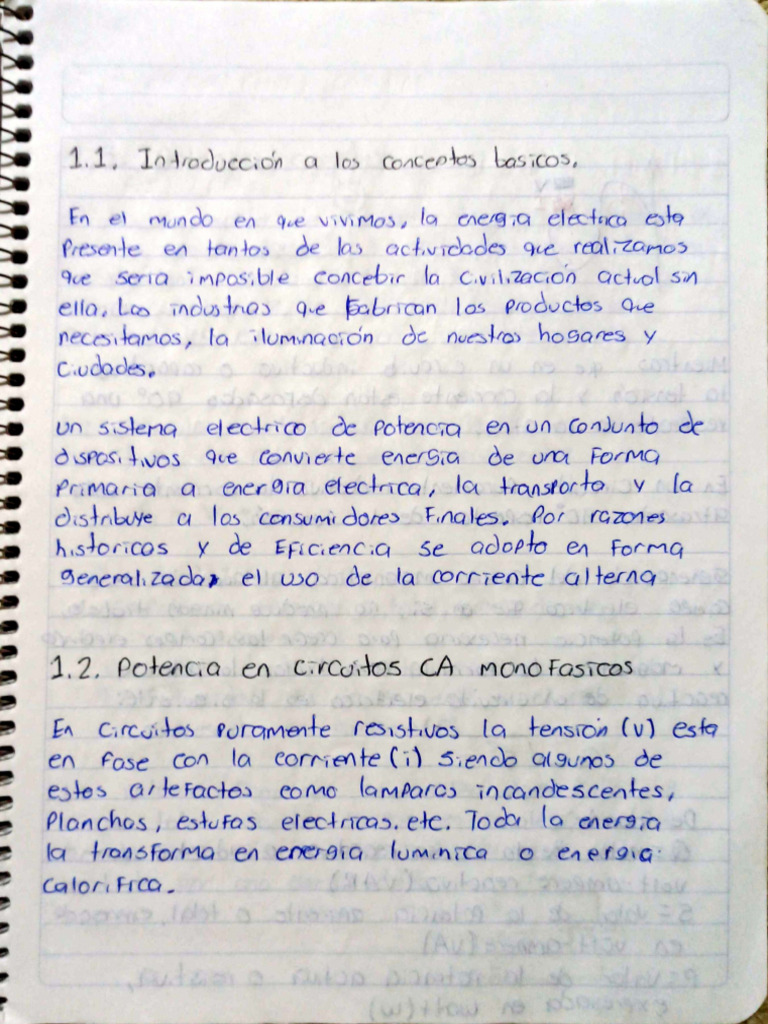 1.1. Introducción a los conceptos basicos.
En el mundo en que vivimos, la energia electrica esta
presente en tantos de las actividades que realizamos
que seria imposible concebir la civilización actual sin
ella. Las industrias que fabrican los productos que
necesitamos, la iluminación de nuestros hogares y
ciudades.
un sistema electrico de potencia en un conjunto de
dispositivos que convierte energia de una forma
primaria a energia electrica, la transporta y la
distribuye a los consumidores finales. Por razones
historicos y de eficiencia se adopto en forma
generalizada, el uso de la corriente alterna
1.2. Potencia en circuitos CA monofasicos
En circuitos puramente resistivos la tensión (v) esta
en fase con la corriente (i) siendo algunos de
estos artefactos como lamparas incandescentes,
planchas, estufas electricas. etc. Toda la energia
la transforma en energia luminica o energia
calorifica.